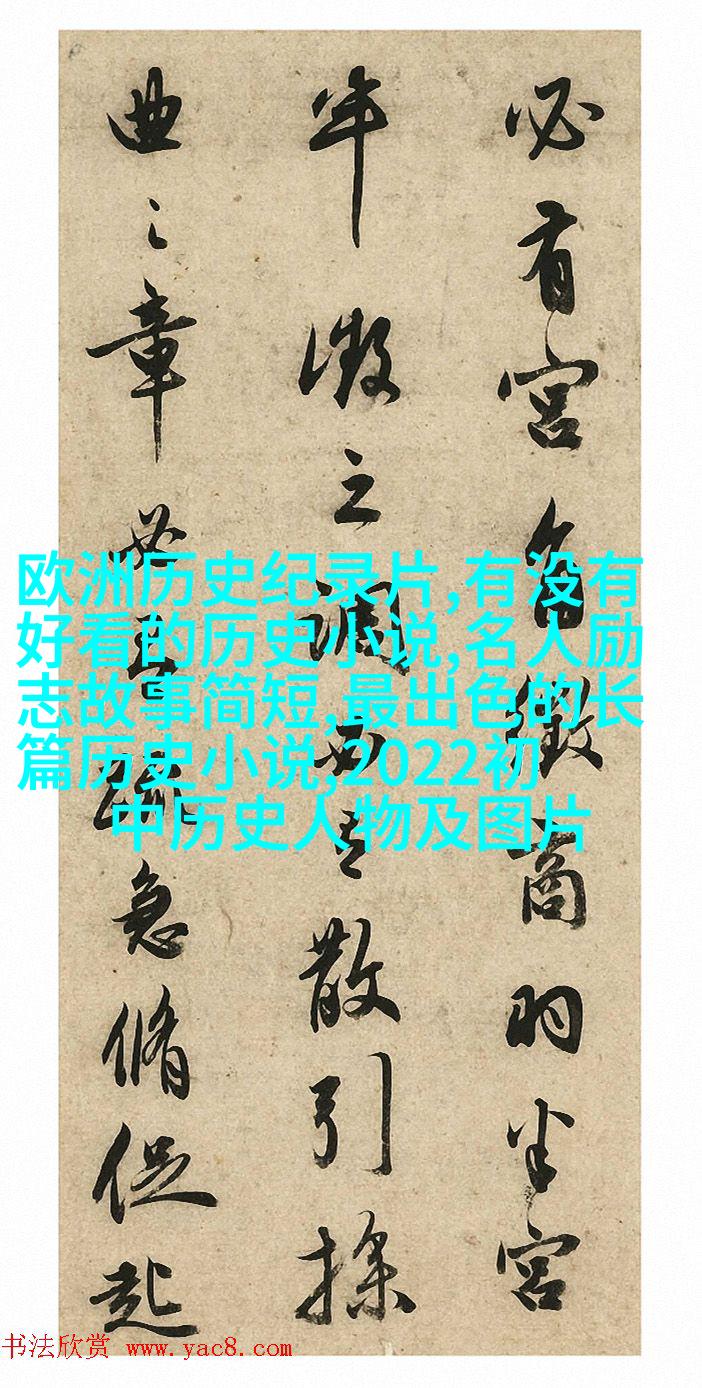 必有宮角徵商羽半宮
半徵之調有散引操
曲之章急脩促起
欧洲历史纪录片,有没有
好看的历史小说,名人励
志故事简短,最出色的长
篇历史小说,2022初
中历史人物及图片
书法欣赏 www.yac8.com